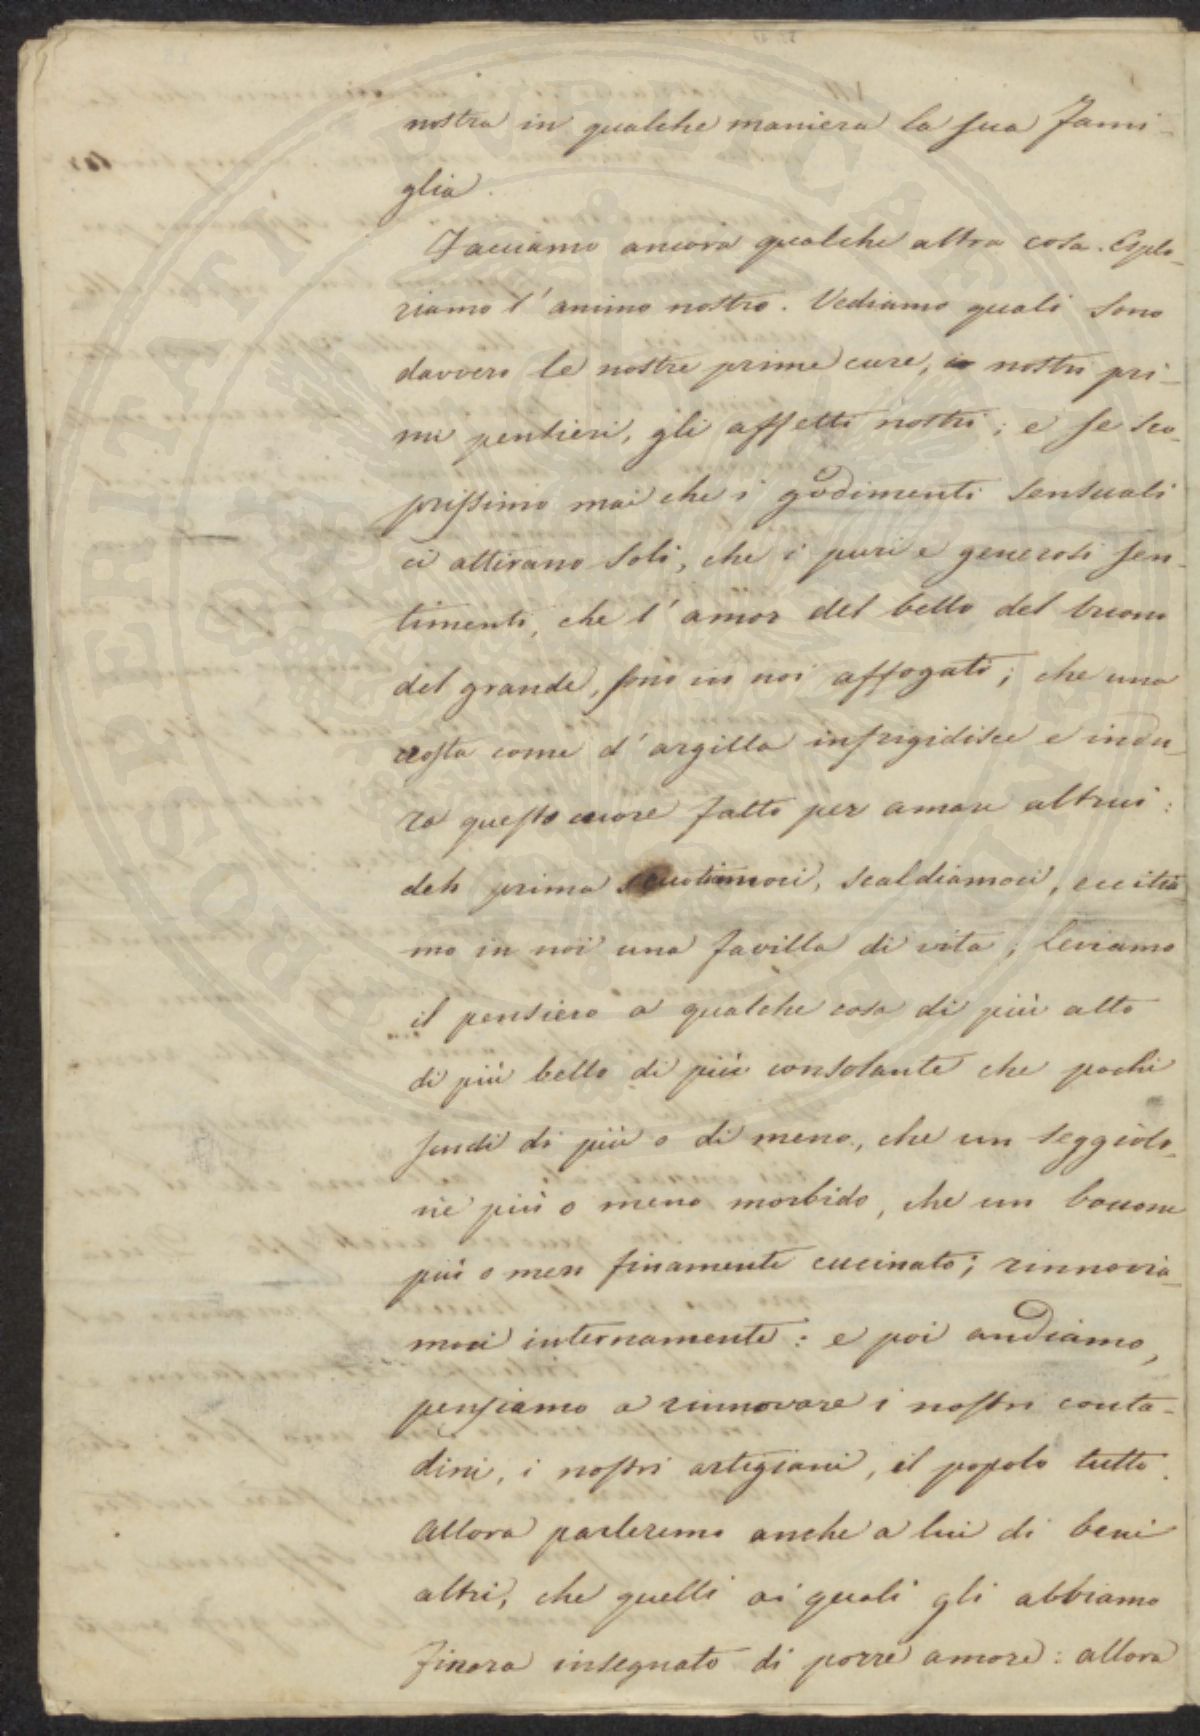 nostra in qualche maniera la sua Fami-
glia.
Facciamo ancora qualche altra cosa. Esplo-
riamo l'animo nostro. Vediamo quali sono
davvero le nostre prime cure, i nostri pri-
mi pensieri, gli affetti nostri; e se sco-
prissimo mai che i godimenti sensuali
ci attirano soli, che i puri e generosi sen-
timenti, che l'amor del bello del buono
del grande, sono in noi affogati; che una
crosta come d'argilla infrigidisce e indu-
ra questo cuore fatto per amare altrui:
deh prima scuotiamoci, scaldiamoci, eccitia
mo in noi una favilla di vita; leviamo
il pensiero a qualche cosa di più alto
di più bello di più consolante che pochi
scudi di più o di meno, che un seggiolo-
ne più o meno morbido, che un boccone
più o men finamente cucinato; rinnovia-
moci internamente: e poi andiamo,
pensiamo a rinnovare i nostri conta-
dini, i nostri artigiani, il popolo tutto.
Allora parleremo anche a lui di beni
altri, che quelli ai quali gli abbiamo
finora insegnato di porre amore: allora
PROSPERITATI PUBLICAE AUGENDAE